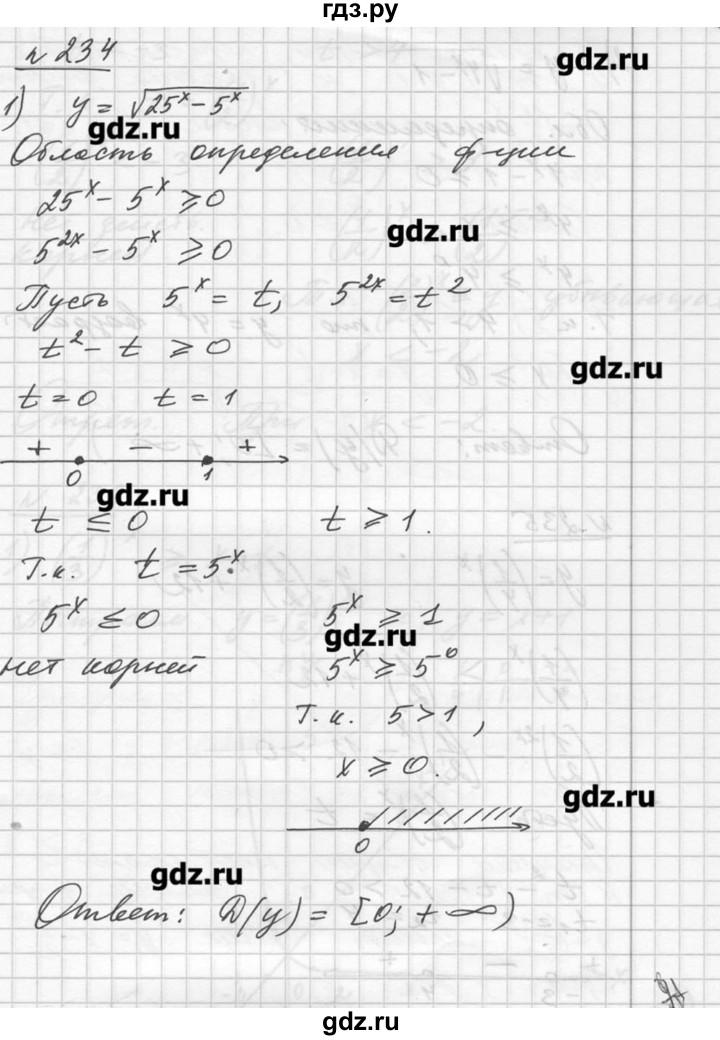 гдз.ру
№ 234
gdz.ru
1) y = √(25^x − 5^x)
gdz.ru
Область определения ф-ции
25^x − 5^x ⩾ 0
gdz.ru
5^{2x} − 5^x ⩾ 0
Пусть 5^x = t, 5^{2x} = t^2
t^2 − t ⩾ 0
gdz.ru
t = 0 t = 1
+ − +
0 1
gdz.ru
t ⩽ 0 t ⩾ 1.
Т.к. t = 5^x.
5^x ⩽ 0 5^x ⩾ 1
gdz.ru
нет корней 5^x ⩾ 5^0
Т.к. 5 > 1,
x ⩾ 0.
gdz.ru
0
gdz.ru
Ответ: D(y) = [0; +∞)
gdz.ru